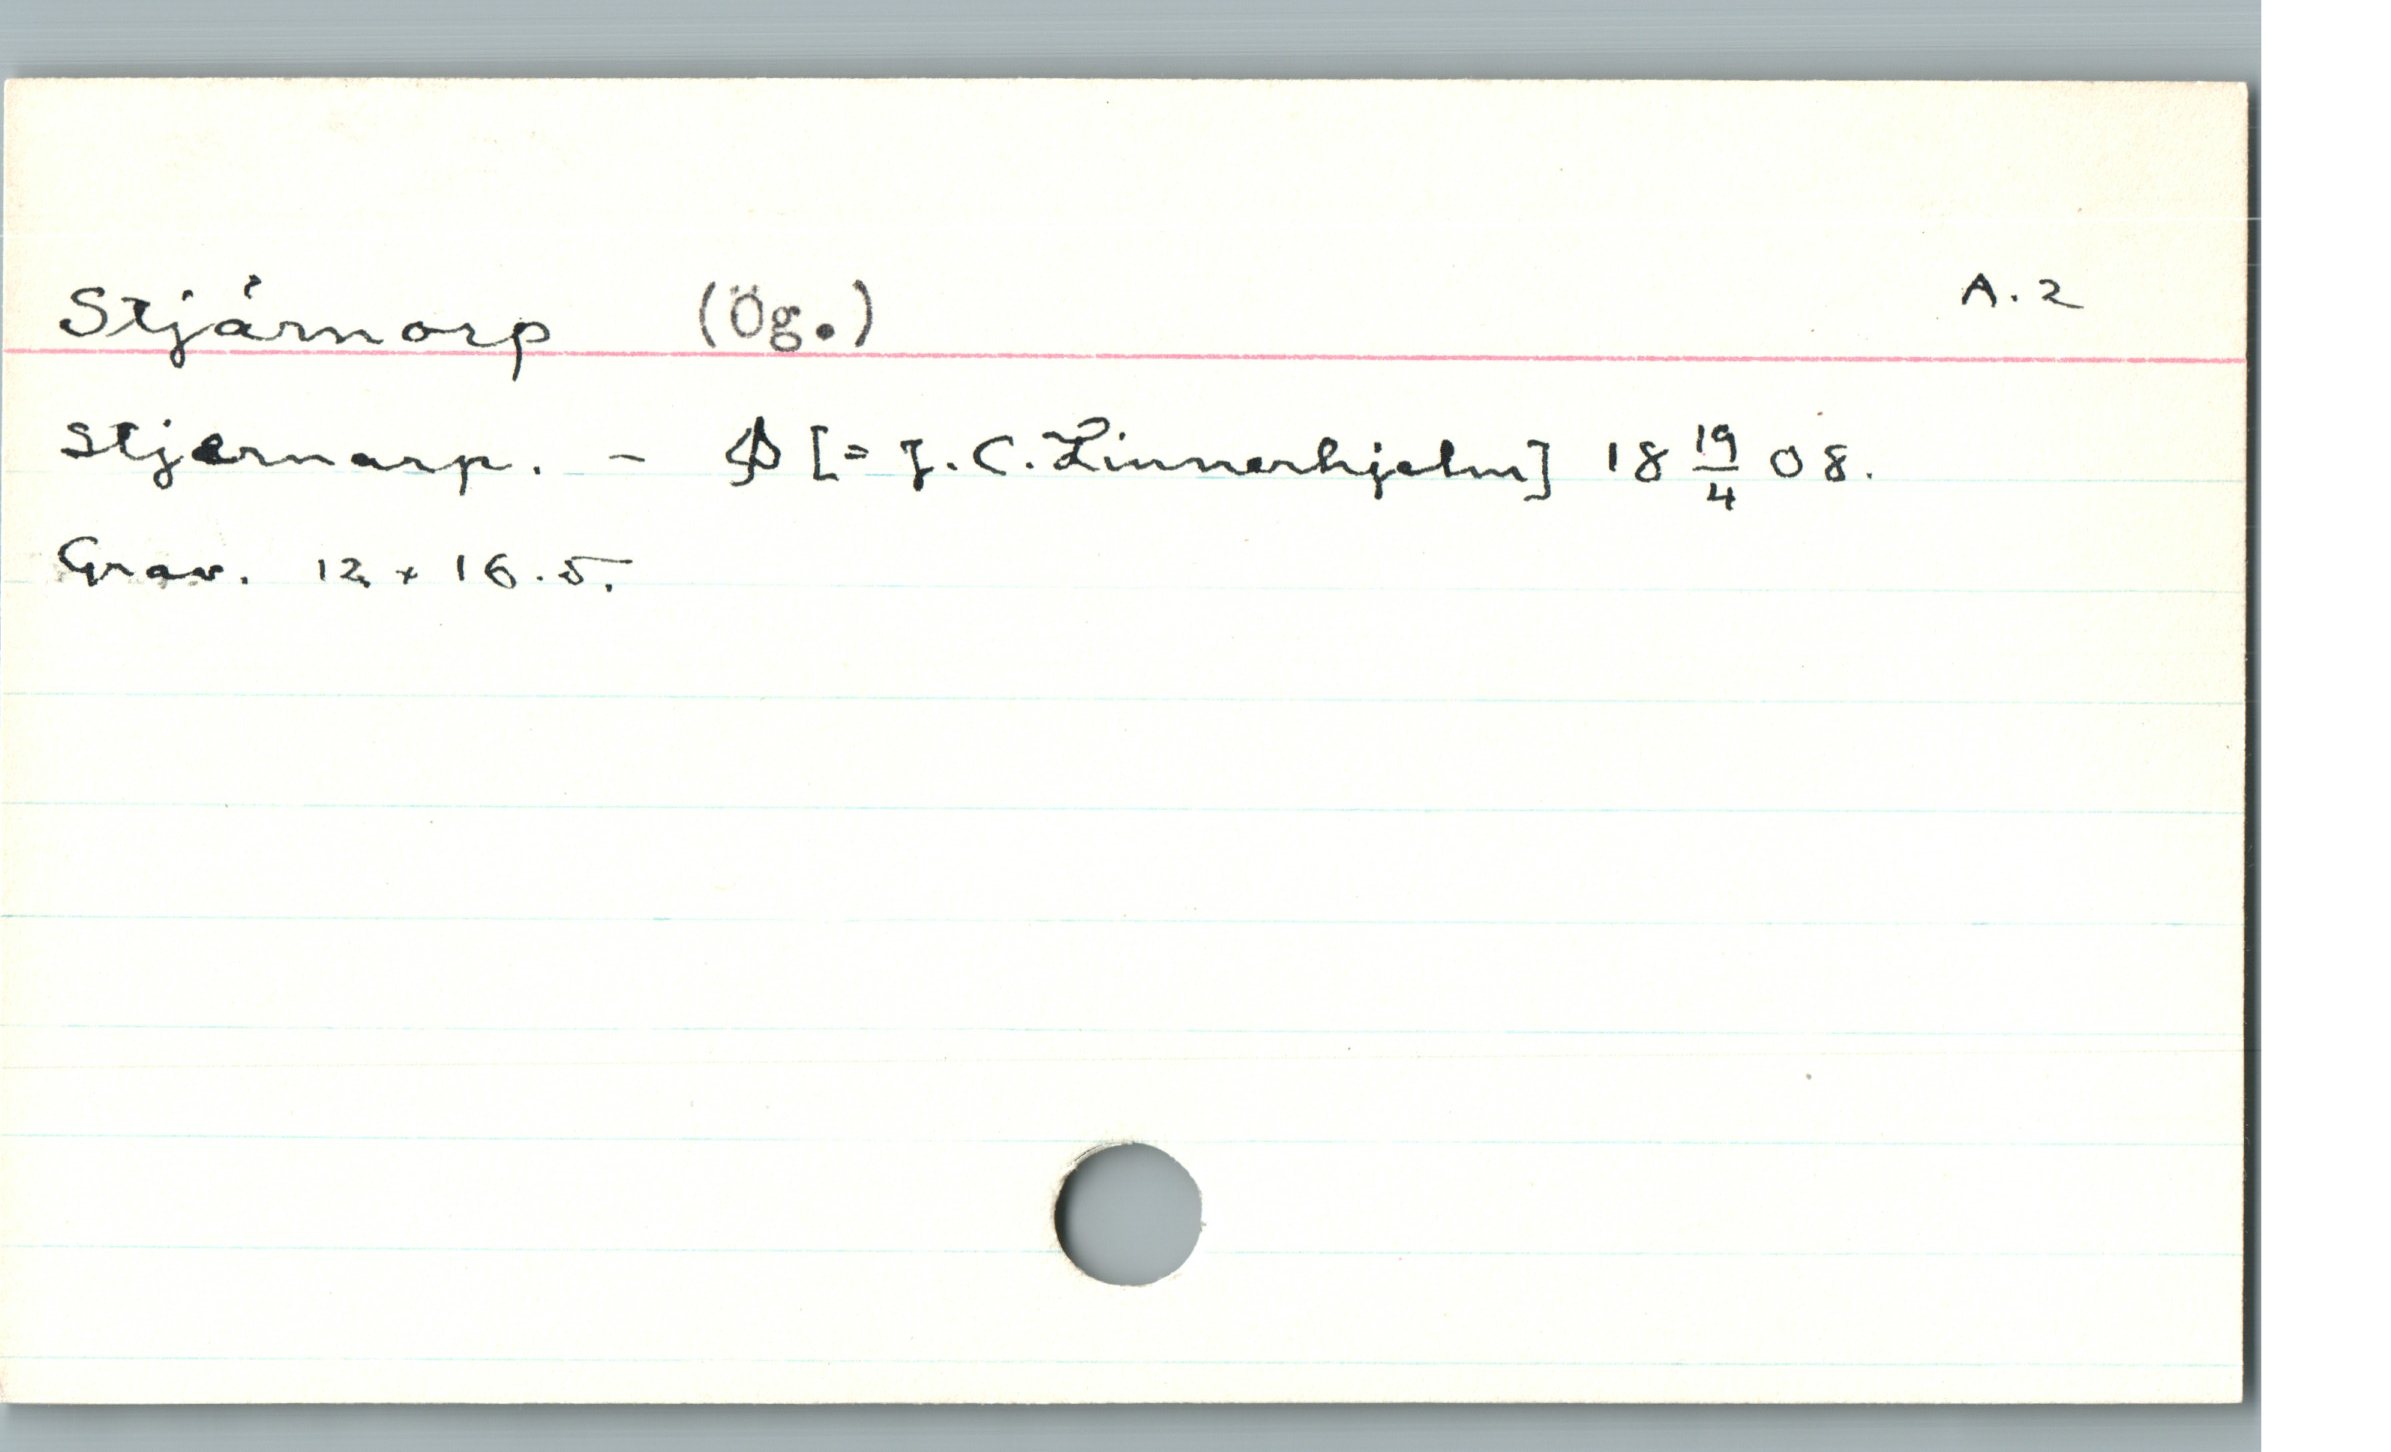 Stjärnorp (Ög.) A.2
Stjernarp. - [= J. C. Linnerhjelm] 18 19/4 08.
Grav. 12 x 16.5.